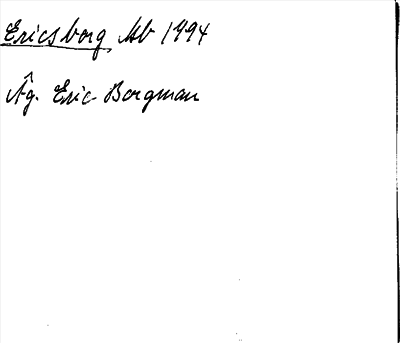 Ericsborg, Mb 1994
Äg. Eric Borgman